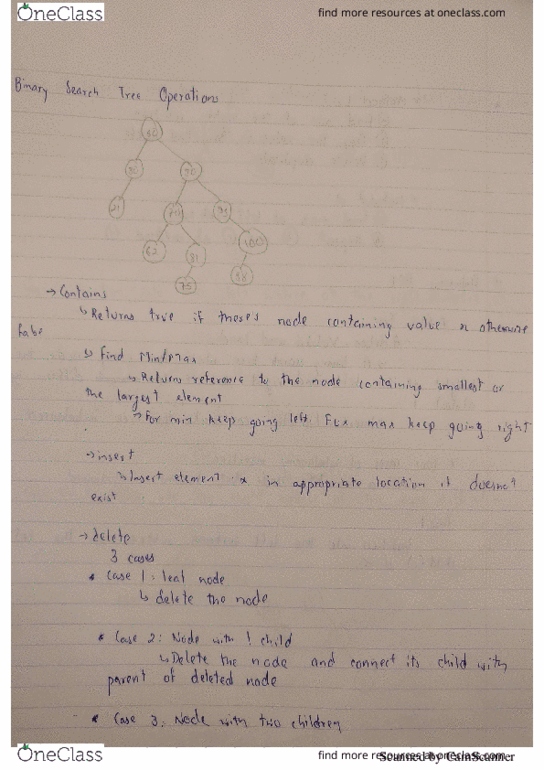 OneClass
find more resources at oneclass.com
Binary Search Tree Operations
21
62
81
75
→ Contains
↳ Returns true if there's node containing value x otherwise
false
↳ Find Min/max
↳ Returns reference to the node containing smallest or
the largest element
→ For min keep going left. For max keep going right
→ insert
↳ Insert element x in appropriate location if doesnot
exist
→ delete
3 cases
* Case 1: leaf node
↳ delete the node
* Case 2: Node with 1 child
↳ Delete the node and connect its child with
parent of deleted node
* Case 3. Node with two children
OneClass
find more resources at oneclass.com
Scanned by CamScanner